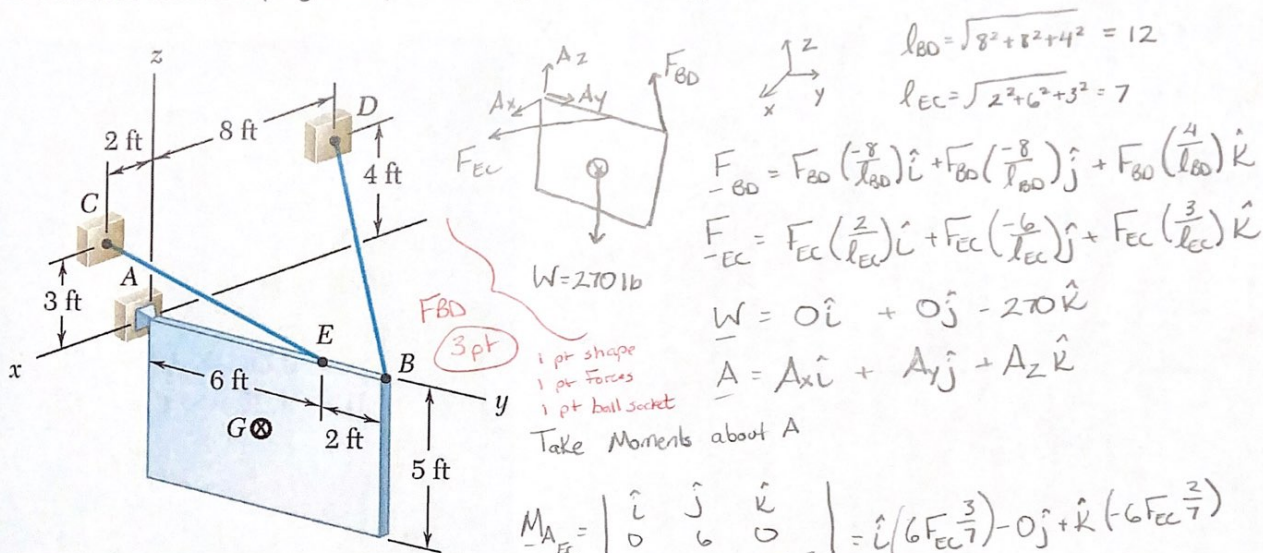 z
D
2 ft
8 ft
4 ft
C
A
3 ft
x
E
B
6 ft
y
G
2 ft
5 ft
A_z
F_BD
A_x
A_y
F_EC
W=270 lb
z
y
x
FBD
3 pt
1 pt shape
1 pt forces
1 pt ball socket
l_BD = √(8²+8²+4²) = 12
l_EC = √(2²+6²+3²) = 7
F_BD = F_BD(-8/l_BD)î + F_BD(-8/l_BD)ĵ + F_BD(4/l_BD)k̂
F_EC = F_EC(2/l_EC)î + F_EC(-6/l_EC)ĵ + F_EC(3/l_EC)k̂
W = 0î + 0ĵ - 270k̂
A = A_xî + A_yĵ + A_zk̂
Take Moments about A
M_A_EC = | î ĵ k̂
0 6 0 | = î(6F_EC 3/7) - 0ĵ + k̂(-6F_EC 2/7)